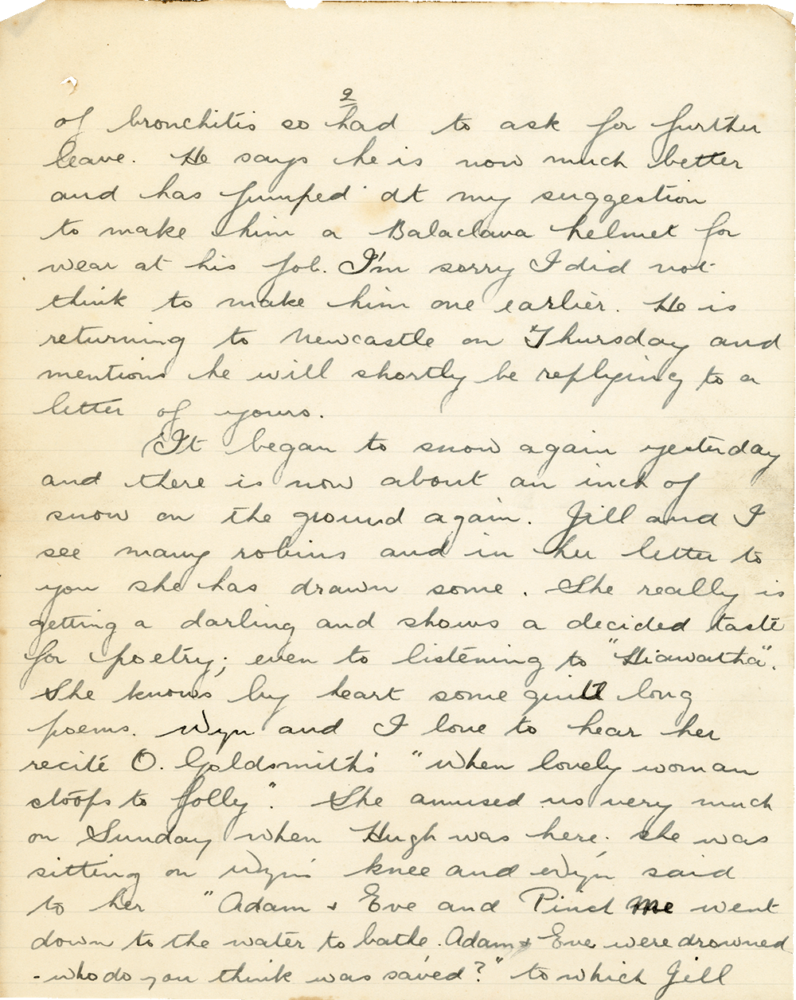 2
of bronchitis so had to ask for further
leave. He says he is now much better
and has jumped at my suggestion
to make him a Balaclava helmet for
wear at his job. I'm sorry I did not
think to make him one earlier. He is
returning to Newcastle on Thursday and
mentions he will shortly be replying to a
letter of yours.
It began to snow again yesterday
and there is now about an inch of
snow on the ground again. Jill and I
see many robins and in her letter to
you she has drawn some. She really is
getting a darling and shows a decided taste
for poetry; even to listening to "Hiawatha".
She knows by heart some quite long
poems. Wyn and I love to hear her
recite O. Goldsmith's "When lovely woman
stoops to folly". She amused us very much
on Sunday when Hugh was here. She was
sitting on Wyn's knee and Wyn said
to her "Adam & Eve and Pinch me went
down to the water to bathe. Adam & Eve were drowned
- who do you think was saved?" to which Jill